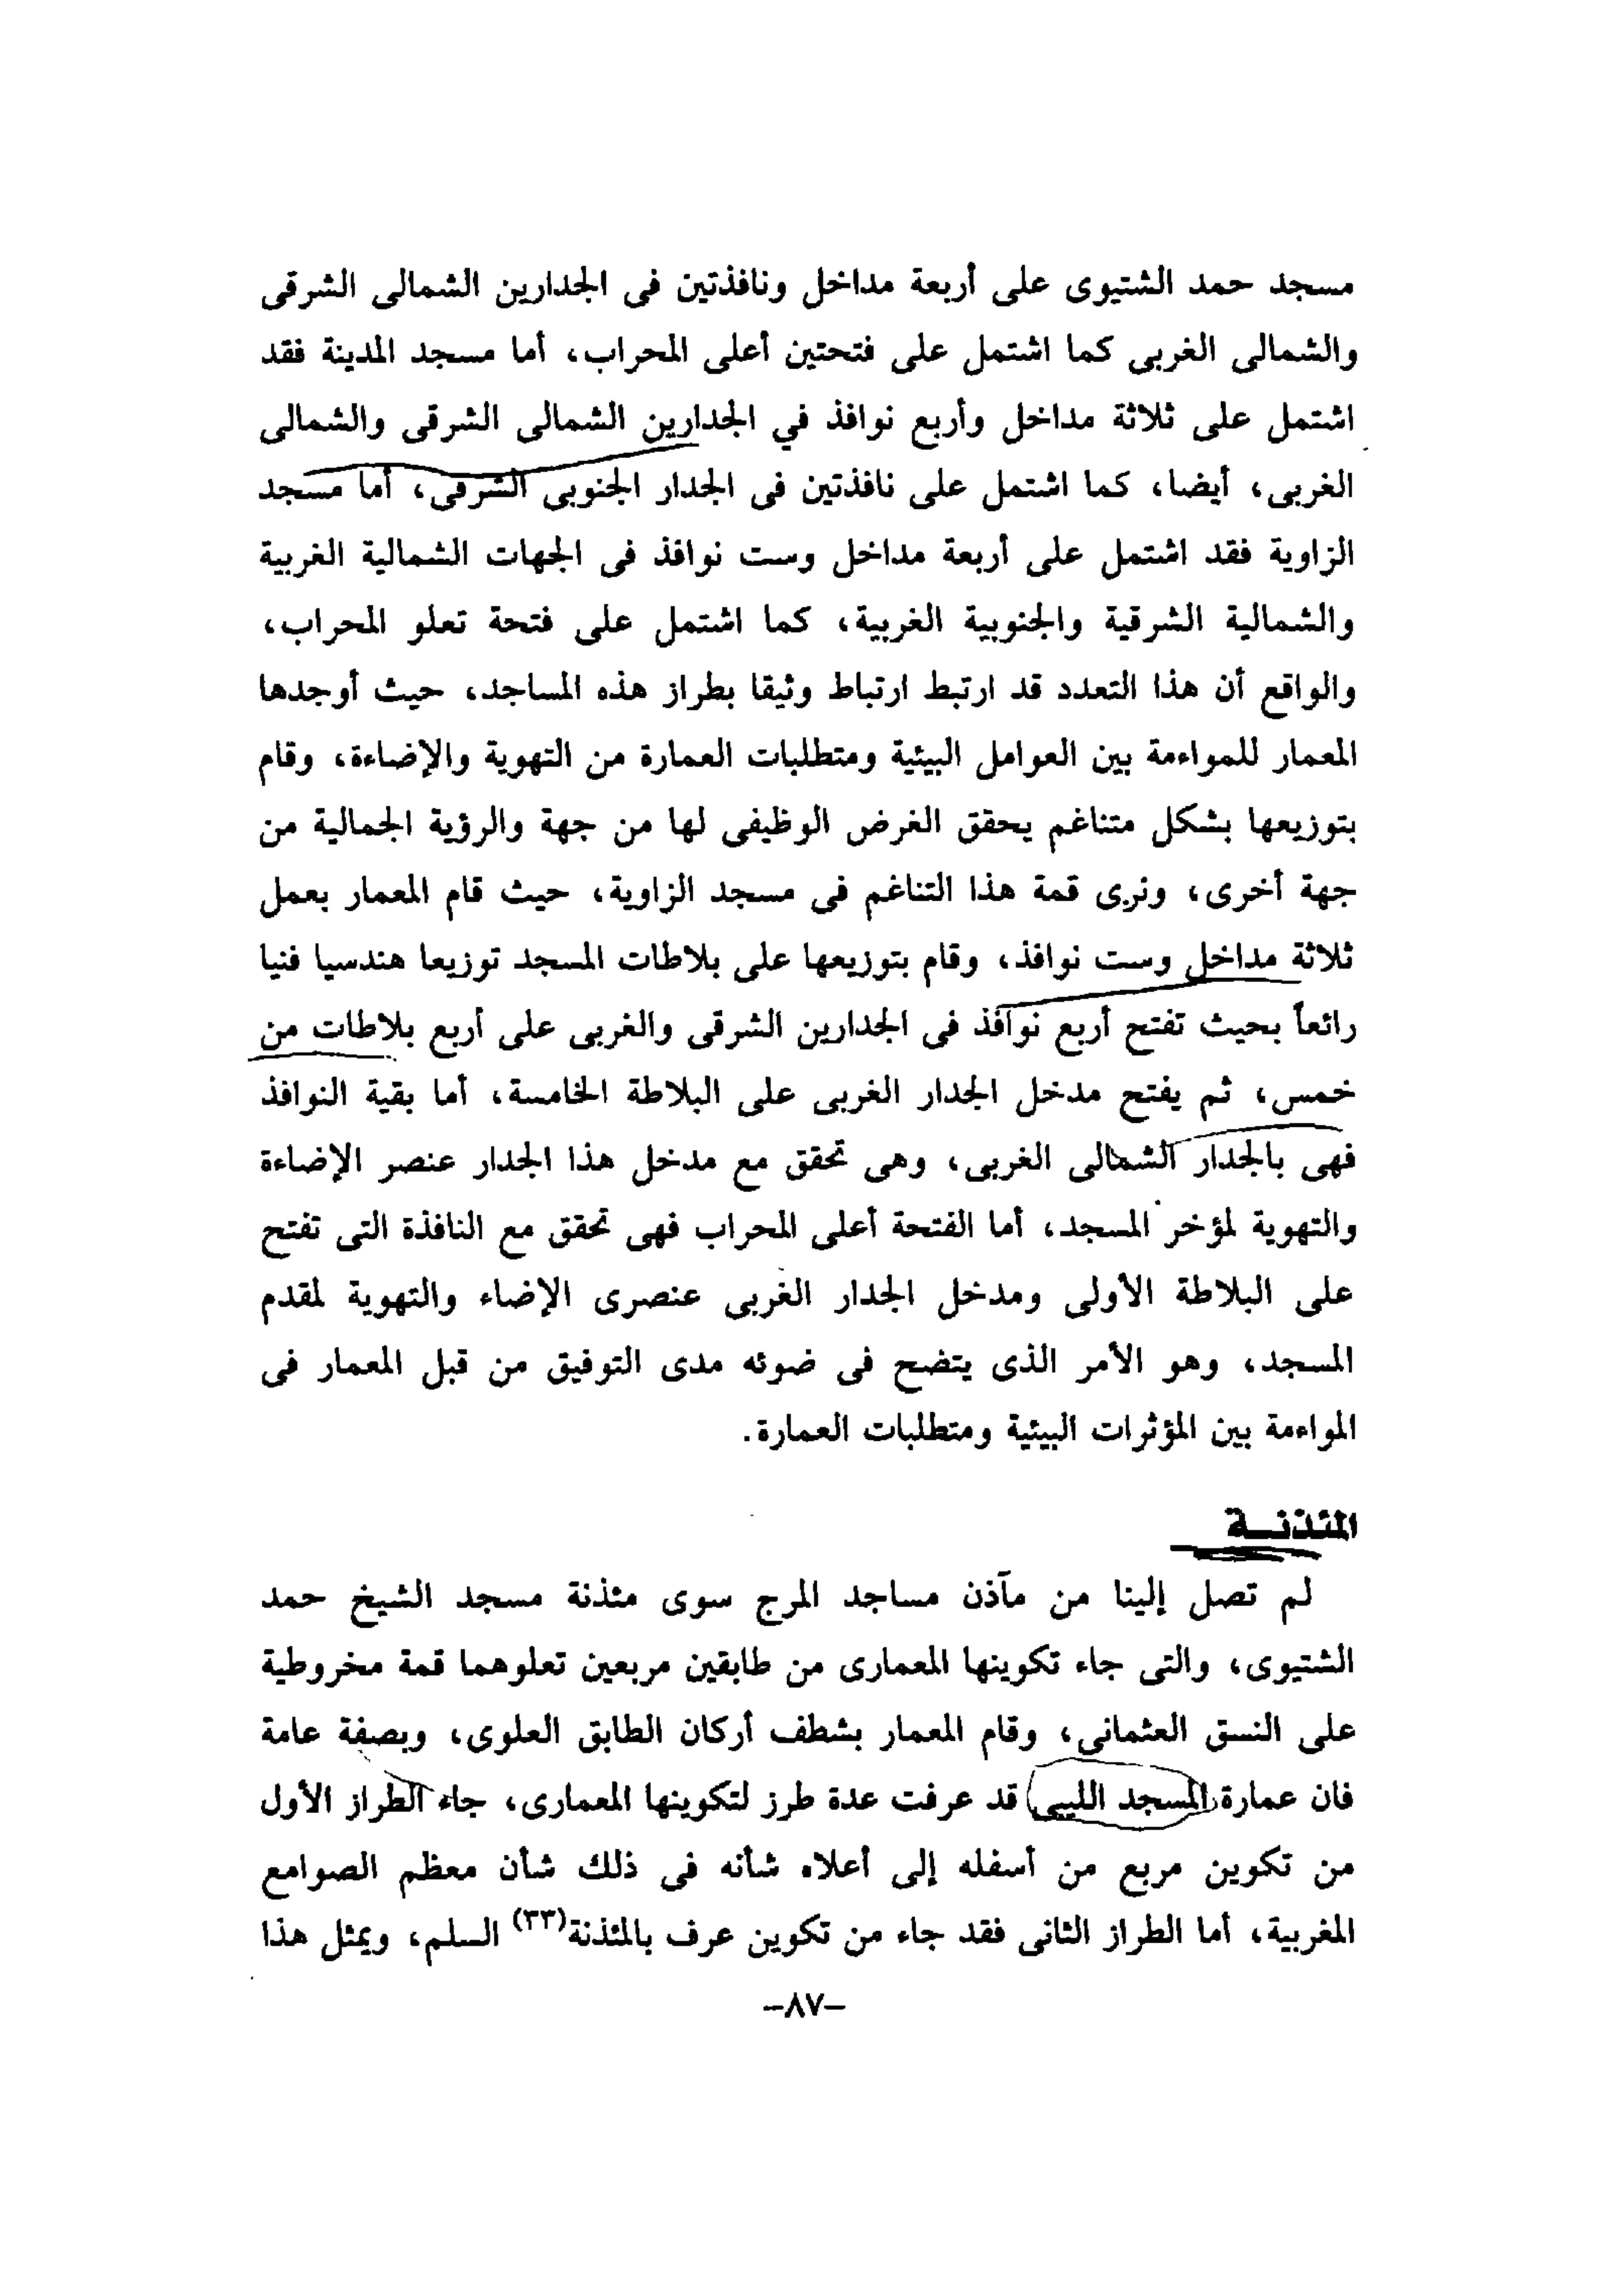 مسجد حمد الشتيوى على أربعة مداخل ونافذتين فى الجدارين الشمالى الشرقى
والشمالى الغربى كما اشتمل على فتحتين أعلى المحراب، أما مسجد المدينة فقد
اشتمل على ثلاثة مداخل وأربع نوافذ في الجدارين الشمالى الشرقى والشمالى
الغربى، أيضا، كما اشتمل على نافذتين فى الجدار الجنوبى الشرقى، أما مسجد
الزاوية فقد اشتمل على أربعة مداخل وست نوافذ فى الجهات الشمالية الغربية
والشمالية الشرقية والجنوبية الغربية، كما اشتمل على فتحة تعلو المحراب،
والواقع أن هذا التعدد قد ارتبط ارتباط وثيقا بطراز هذه المساجد، حيث أوجدها
المعمار للمواءمة بين العوامل البيئية ومتطلبات العمارة من التهوية والإضاءة، وقام
بتوزيعها بشكل متناغم يحقق الغرض الوظيفى لها من جهة والرؤية الجمالية من
جهة أخرى، ونرى قمة هذا التناغم فى مسجد الزاوية، حيث قام المعمار بعمل
ثلاثة مداخل وست نوافذ، وقام بتوزيعها على بلاطات المسجد توزيعا هندسيا فنيا
رائعاً بحيث تفتح أربع نوافذ فى الجدارين الشرقى والغربى على أربع بلاطات من
خمس، ثم يفتح مدخل الجدار الغربى على البلاطة الخامسة، أما بقية النوافذ
فهى بالجدار الشمالى الغربى، وهى تحقق مع مدخل هذا الجدار عنصر الإضاءة
والتهوية لمؤخر المسجد، أما الفتحة أعلى المحراب فهى تحقق مع النافذة التى تفتح
على البلاطة الأولى ومدخل الجدار الغربى عنصرى الإضاء والتهوية لمقدم
المسجد، وهو الأمر الذى يتضح فى ضوئه مدى التوفيق من قبل المعمار فى
المواءمة بين المؤثرات البيئية ومتطلبات العمارة.
المئذنــة
لم تصل إلينا من مآذن مساجد المرج سوى مئذنة مسجد الشيخ حمد
الشتيوى، والتى جاء تكوينها المعمارى من طابقين مربعين تعلوهما قمة مخروطية
على النسق العثمانى، وقام المعمار بشطف أركان الطابق العلوى، وبصفة عامة
فان عمارة المسجد الليبى قد عرفت عدة طرز لتكوينها المعمارى، جاء الطراز الأول
من تكوين مربع من أسفله إلى أعلاه شأنه فى ذلك شأن معظم الصوامع
المغربية، أما الطراز الثانى فقد جاء من تكوين عرف بالمئذنة(٣٣) السلم، ويمثل هذا
–٨٧–